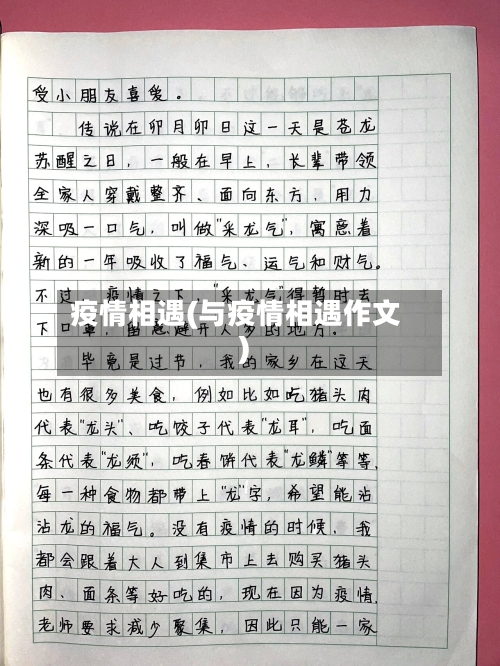 受小朋友喜爱。
传说在卯月卯日这一天是苍龙
苏醒之日，一般在早上，长辈带领
全家人穿戴整齐、面向东方，用力
深吸一口气，叫做"采龙气"，寓意着
新的一年吸收了福气、运气和财气。
不过，疫情之下，"采龙气"得暂时去
疫情相遇(与疫情相遇作文
)
下口罩，留意避开人多的地方。
毕竟是过节，我的家乡在这天
也有很多美食，例如比如吃猪头肉
代表"龙头"、吃饺子代表"龙耳"，吃面
条代表"龙须"，吃春饼代表"龙鳞"等等，
每一种食物都带上"龙"字，希望能沾
沾龙的福气。没有疫情的时候，我
都会跟着大人到集市上去购买猪头
肉、面条等好吃的，现在因为疫情，
老师要求减少聚集，因此只能一家